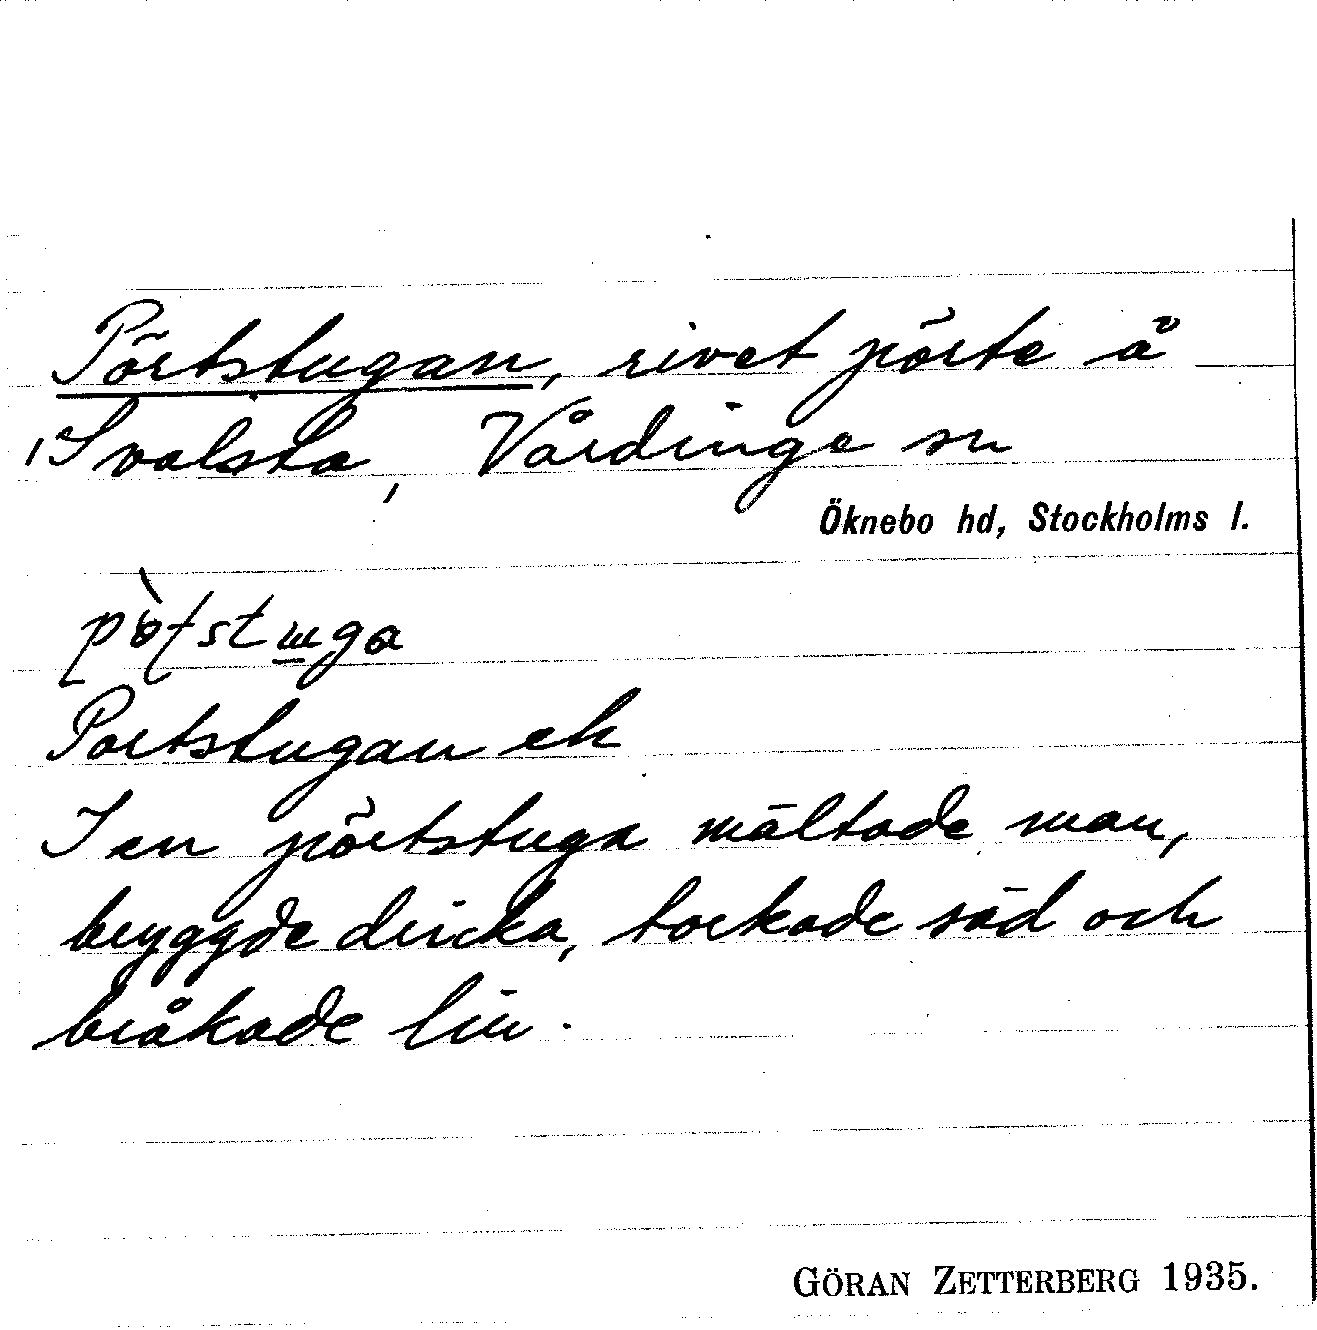 Pörtstugan, rivet pörte å
Svalsta, Vårdinge sn
Öknebo hd, Stockholms l.
Portstugan ek
I en pörtstuga mältade man,
bryggde dricka, torkade säd och
bråkade lin.
GÖRAN ZETTERBERG 1935.